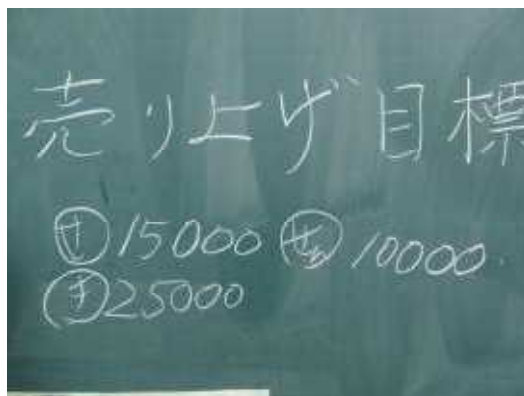 売り上げ目標
サ 15000 ぜ 10000
25000